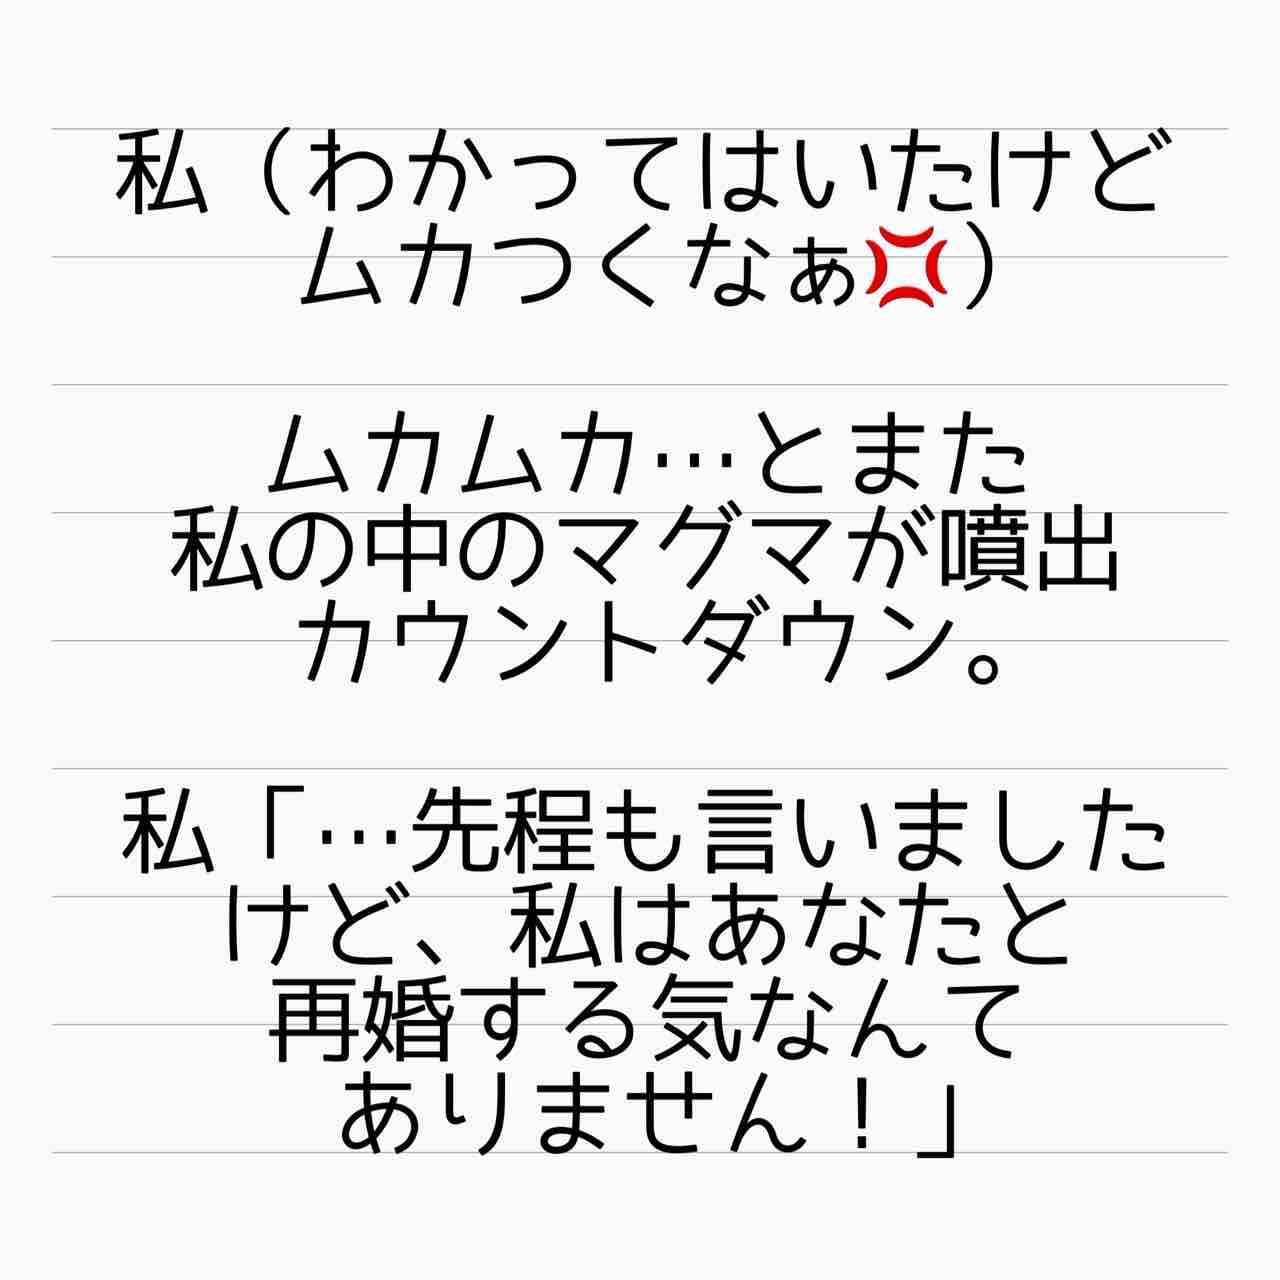 私（わかってはいたけど
ムカつくなぁ💢）
ムカムカ…とまた
私の中のマグマが噴出
カウントダウン。
私「…先程も言いました
けど、私はあなたと
再婚する気なんて
ありません！」